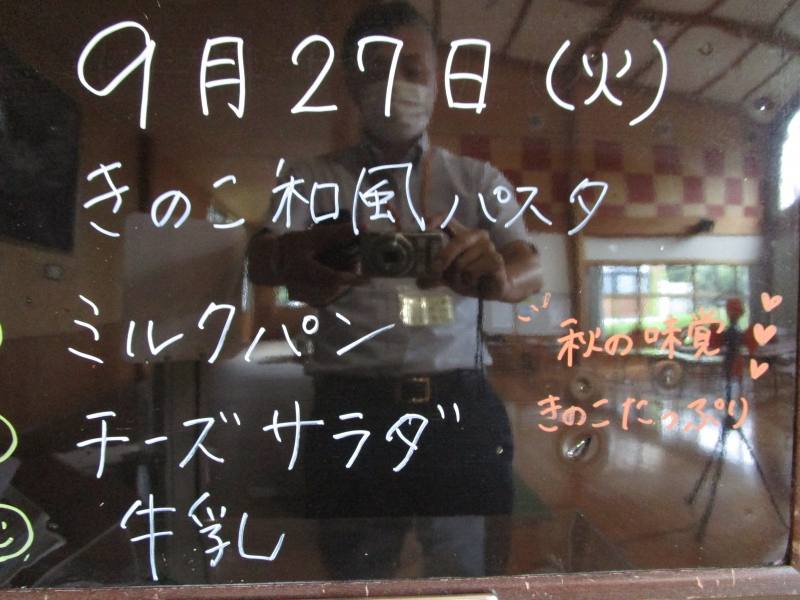 9月27日(火)
きのこ和風パスタ
ミルクパン
秋の味覚
チーズサラダ
きのこたっぷり
牛乳